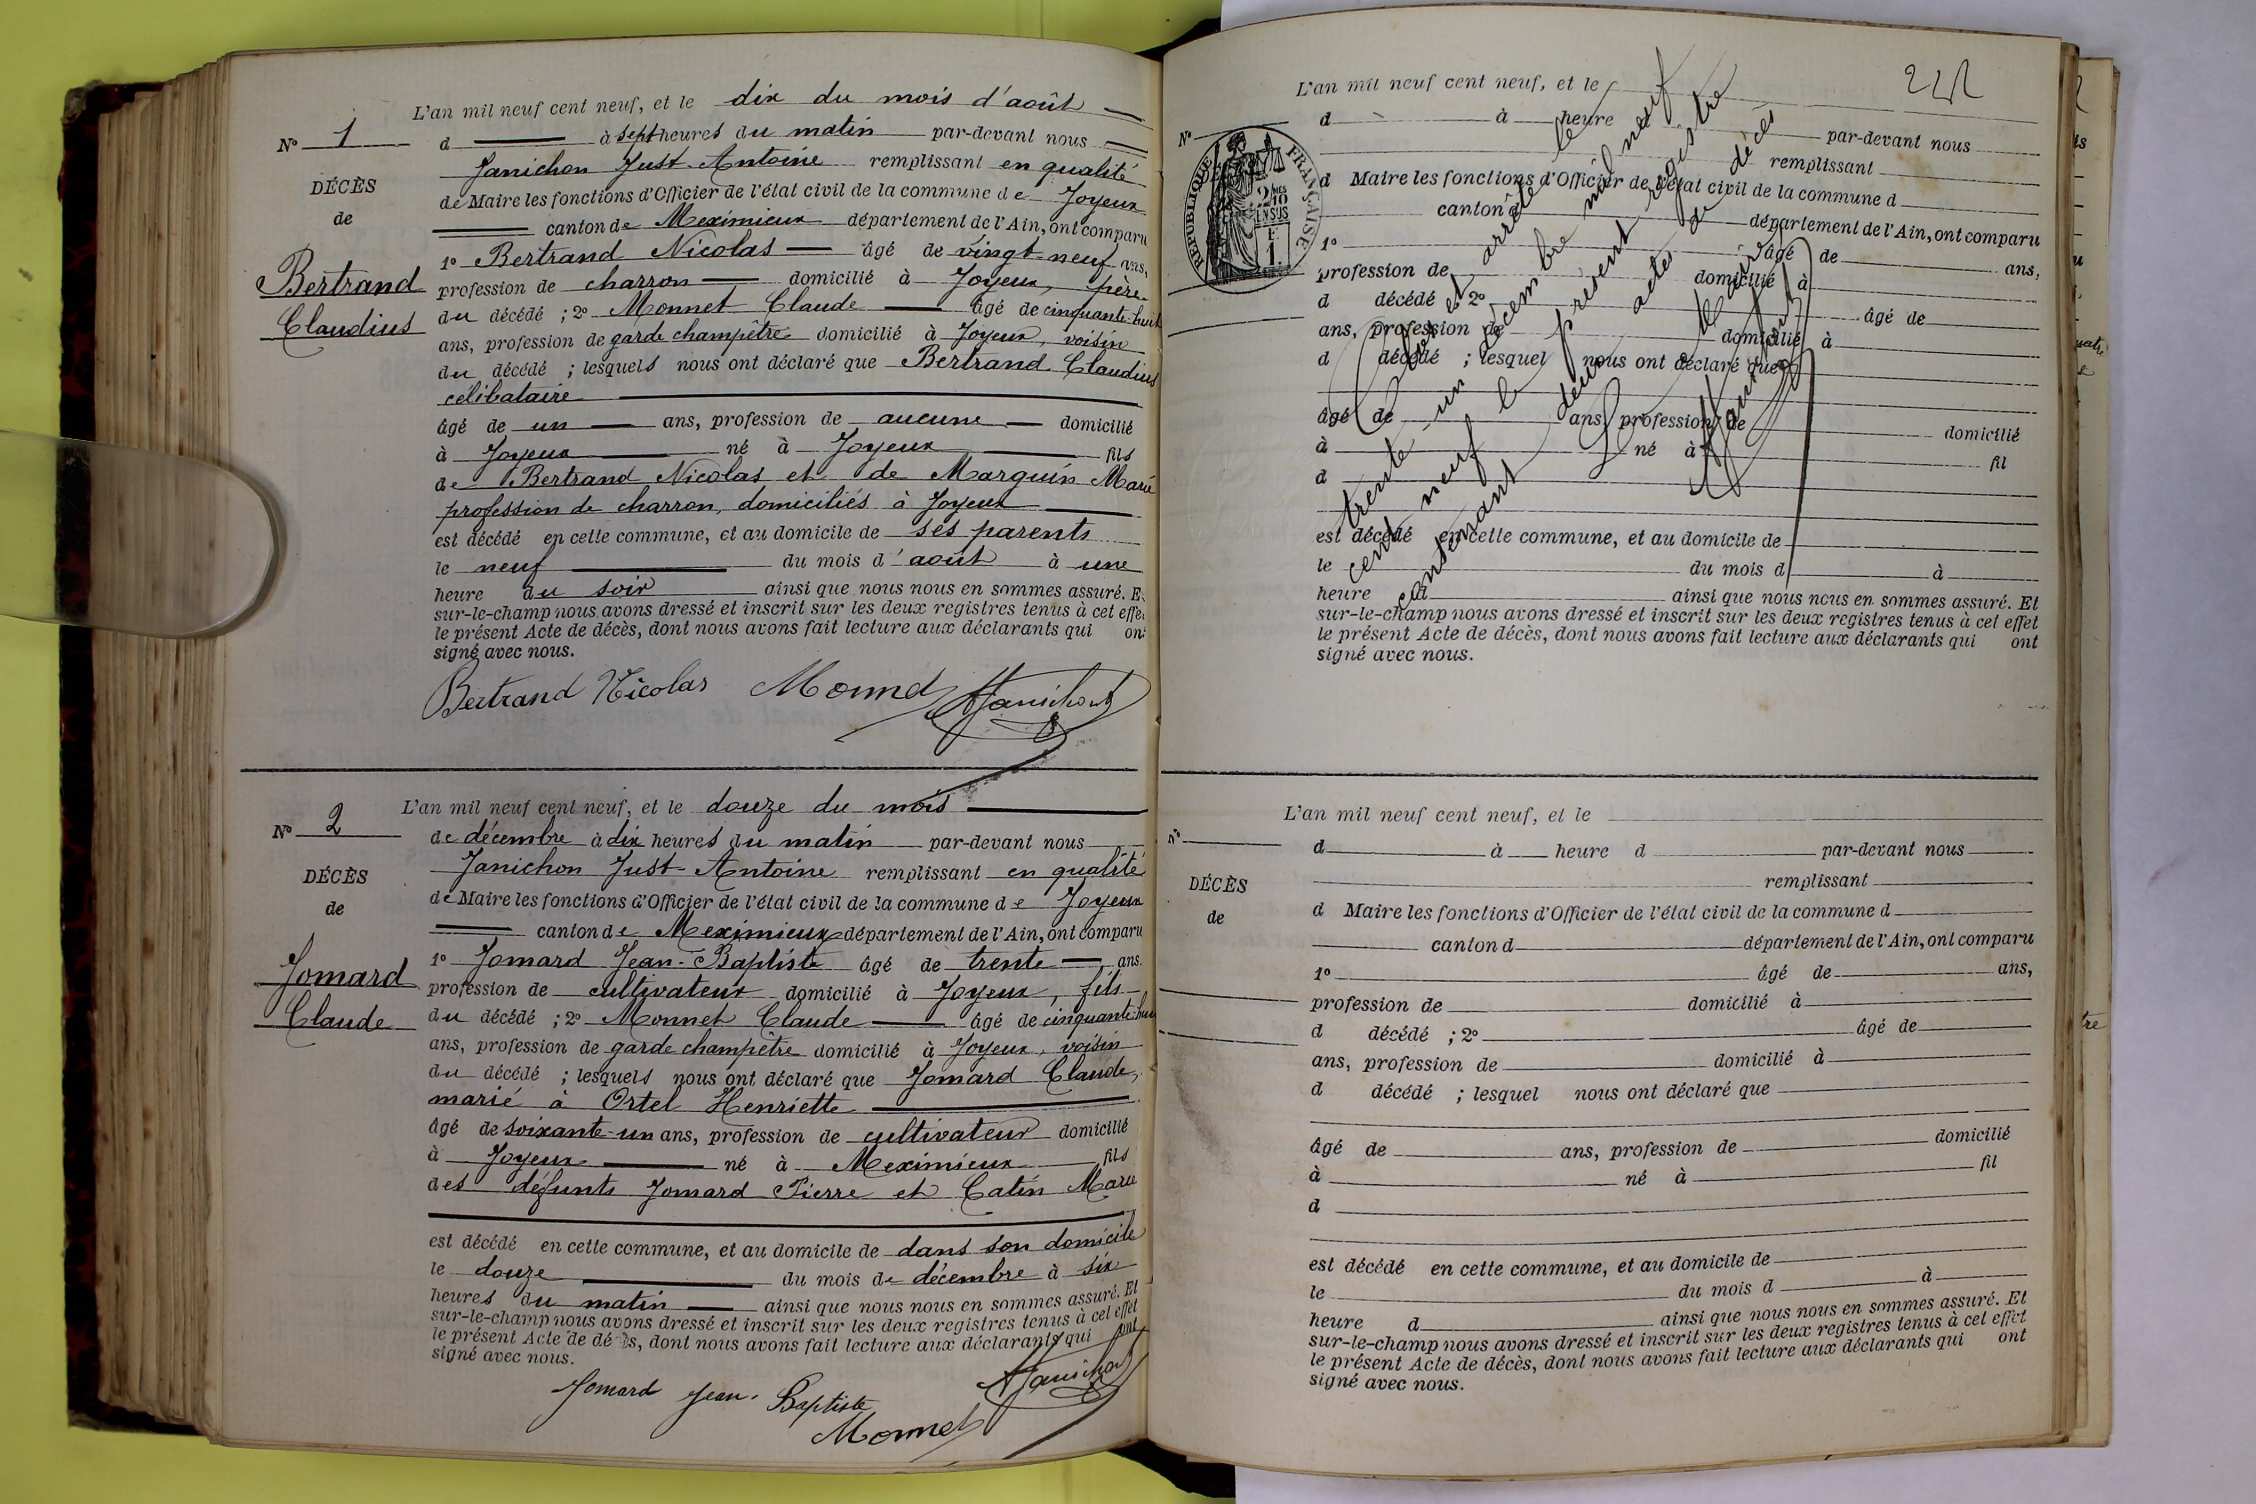 L'an mil neuf cent neuf, et le dix du mois d'août
No 1 d à sept heures du matin par-devant nous
Janichon Just-Antoine remplissant en qualité
DÉCÈS
de Maire les fonctions d'Officier de l'état civil de la commune de Joyeux
de
canton de Meximieux département de l'Ain, ont comparu
1o Bertrand Nicolas âgé de vingt-neuf ans,
Bertrand
profession de charron domicilié à Joyeux, père
Claudius
du décédé ; 2o Monnet Claude âgé de cinquante-huit
ans, profession de garde champêtre domicilié à Joyeux, voisin
du décédé ; lesquels nous ont déclaré que Bertrand Claudius
célibataire
âgé de un ans, profession de aucune domicilié
à Joyeux né à Joyeux fils
de Bertrand Nicolas et de Marguin Marie
profession de charron, domiciliés à Joyeux
est décédé en cette commune, et au domicile de ses parents
le neuf du mois d'août à une
heure du soir ainsi que nous nous en sommes assuré. Et
sur-le-champ nous avons dressé et inscrit sur les deux registres tenus à cet effet
le présent Acte de décès, dont nous avons fait lecture aux déclarants qui ont
signé avec nous.
Bertrand Nicolas Monnet AJanichon
L'an mil neuf cent neuf, et le douze du mois
No 2 de décembre à dix heures du matin par-devant nous
Janichon Just-Antoine remplissant en qualité
DÉCÈS
de Maire les fonctions d'Officier de l'état civil de la commune de Joyeux
de
canton de Meximieux département de l'Ain, ont comparu
1o Jomard Jean-Baptiste âgé de trente ans.
Jomard
profession de cultivateur domicilié à Joyeux, fils
Claude
du décédé ; 2o Monnet Claude âgé de cinquante-huit
ans, profession de garde champêtre domicilié à Joyeux, voisin
du décédé ; lesquels nous ont déclaré que Jomard Claude,
marié à Ortel Henriette
âgé de soixante-un ans, profession de cultivateur domicilié
à Joyeux né à Meximieux fils
des défunts Jomard Pierre et Catin Marie
est décédé en cette commune, et au domicile de dans son domicile
le douze du mois de décembre à six
heures du matin ainsi que nous nous en sommes assuré. Et
sur-le-champ nous avons dressé et inscrit sur les deux registres tenus à cet effet
le présent Acte de décès, dont nous avons fait lecture aux déclarants qui ont
signé avec nous.
Jomard Jean-Baptiste AJanichon
Monnet
L'an mil neuf cent neuf, et le
No d à heure par-devant nous
remplissant
RÉPUBLIQUE FRANÇAISE
2/10 EN SUS
1 F.
d Maire les fonctions d'Officier de l'état civil de la commune d
canton d département de l'Ain, ont comparu
1o âgé de ans,
profession de domicilié à
d décédé 2o âgé de
ans, profession de domicilié à
d décédé ; lesquel nous ont déclaré que
âgé de ans, profession de domicilié
à né à fil
d
est décédé en cette commune, et au domicile de
le du mois d à
heure d ainsi que nous nous en sommes assuré. Et
sur-le-champ nous avons dressé et inscrit sur les deux registres tenus à cet effet
le présent Acte de décès, dont nous avons fait lecture aux déclarants qui ont
signé avec nous.
Clos et arrêté le
trente-un décembre mil neuf
cent neuf le présent registre
contenant deux actes de décès
Le Maire
AJanichon
L'an mil neuf cent neuf, et le
No d à heure d par-devant nous
remplissant
DÉCÈS
d Maire les fonctions d'Officier de l'état civil de la commune d
de
canton d département de l'Ain, ont comparu
1o âgé de ans,
profession de domicilié à
d décédé ; 2o âgé de
ans, profession de domicilié à
d décédé ; lesquel nous ont déclaré que
âgé de ans, profession de domicilié
à né à fil
d
est décédé en cette commune, et au domicile de
le du mois d à
heure d ainsi que nous nous en sommes assuré. Et
sur-le-champ nous avons dressé et inscrit sur les deux registres tenus à cet effet
le présent Acte de décès, dont nous avons fait lecture aux déclarants qui ont
signé avec nous.